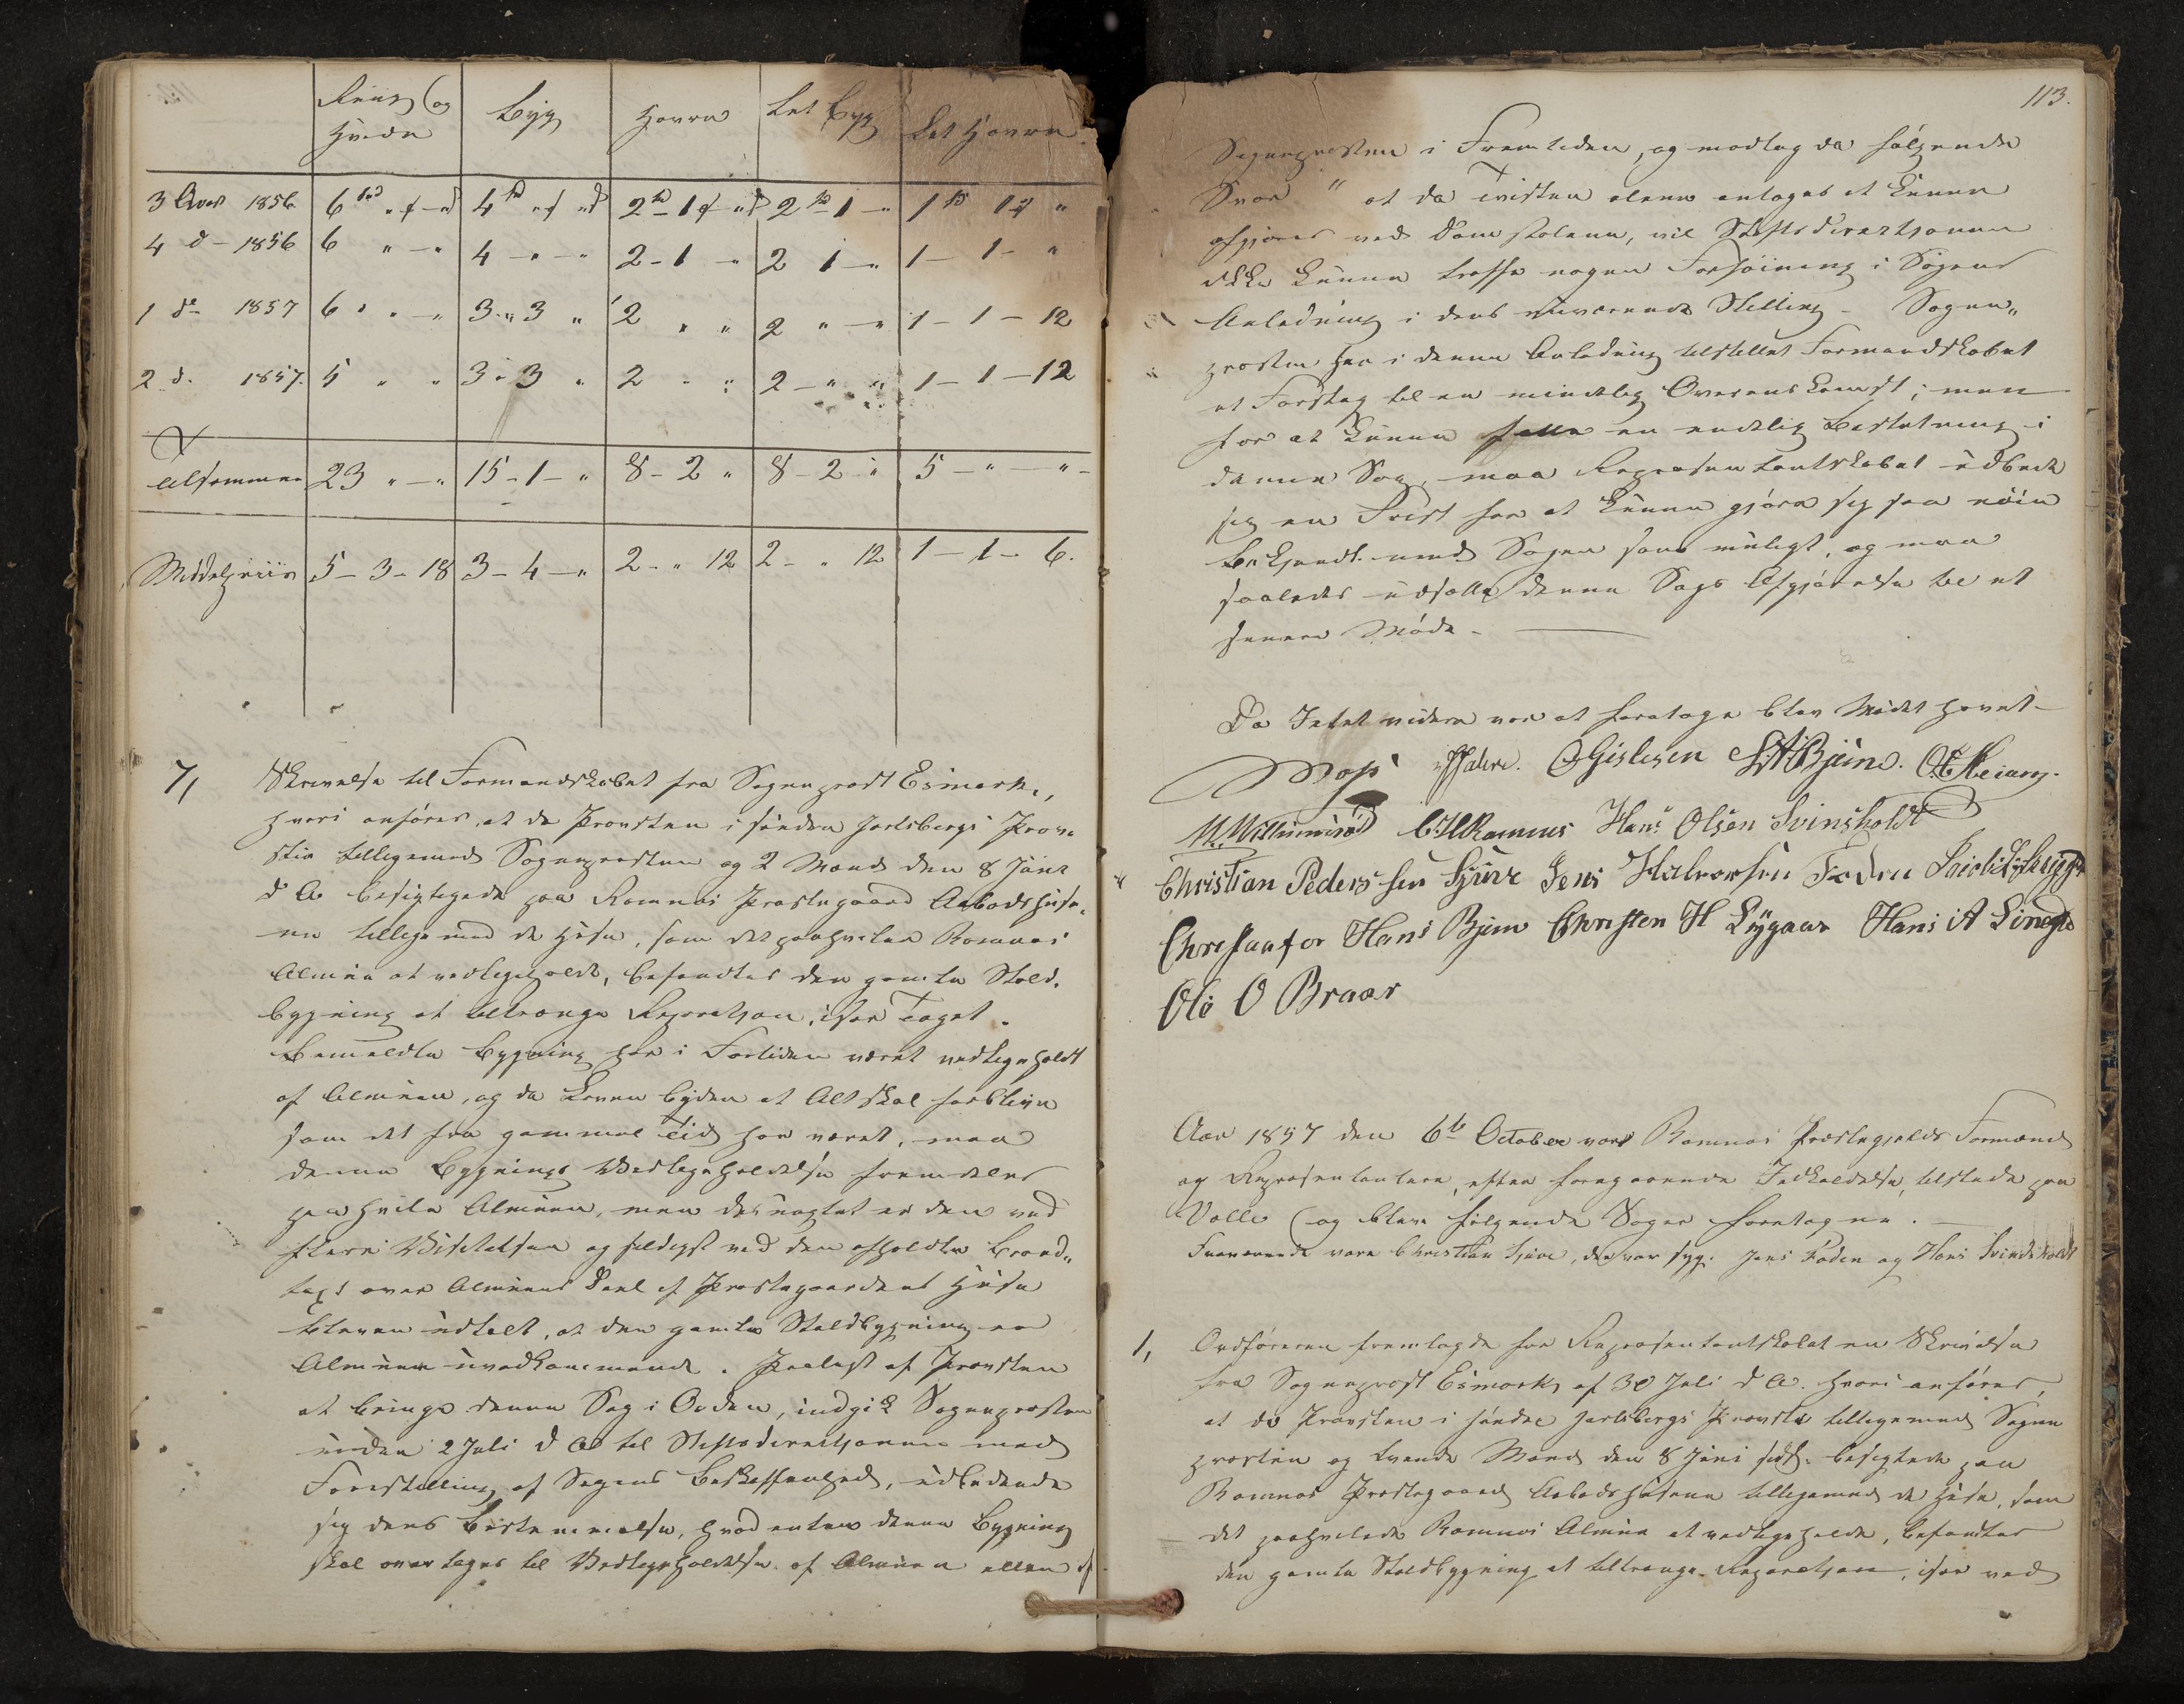 Rüug og Hvede | Byg | Havre | Let Byg | Let Havre
3 Qvar 1856 | 6 | 4 | 2 - 1 | 2 - 1 - " | 1 1 "
4 d - 1856 | 6 " - " | 4 - " - " | 2 - 1 - " | 2 1 - " | 1 - 1 - "
1 d - 1857 | 6 " " - " | 3 " 3 " | 2 " " | 2 " - " | 1 - 1 - 12
2 d. 1857. | 5 " " | 3 " 3 " | 2 " " | 2 - " " | 1 - 1 - 12
alsammen | 23 " - " | 15 - 1 - " | 8 - 2 " | 8 - 2 - " | 5 - " - " -
Middelpriis | 5 - 3 - 18 | 3 - 4 - " | 2 - " 12 | 2 - " 12 | 1 - 1 - 6.
7, Skrivelse til Formandskabet fra Sogneprest Esmark,
hvori anføres, at da Provsten i søndre Jarlsbergs Prov-
stie tilligemed Sognepresten og 2 Mænd den 8 Juni
d A besigtigede paa Ramnæs Prestegaard Aabodshuse-
ne tillige med de Huse, som det paahviler Ramnæs
Almue at vedligeholde, befandtes den gamle Stald-
bygning at tiltrænge Reparation, især Taget.
Bemeldte Bygning har i Fortiden været vedligeholdt
af Almuen, og da Loven byder at Alt skal forblive
som det fra gammel Tid har været, maa
denne Bygnings Vedligeholdelse fremdeles
paahvile Almuen, men desuagtet er den ved
flere Visitatser og sidst ved den afholdte Brand-
taxt over Almuens Deel af Prestegaardens Huse
bleven udtalt, at den gamle Staldbygning er
Almuen uvedkommende. Paalagt af Provsten
at bringe denne Sag i Orden, indgik Sognepresten
under 2 Juli d A til Stiftsdirectionen med
Forestilling af Sagens Beskaffenhed, udbedende
sig dens Bestemmelse, hvad enten denne Bygning
skal overtages til Vedligeholdelse af Almuen eller af
113.
Sognepresten i Fremtiden, og modtog da følgende
Svar " at da Tvisten alene antages at kunne
afgjøres ved Domstolene, vil Stiftsdirectionen
ikke kunne træffe nogen Forføining i Sagens
Anledning i dens nuværende Stilling - Sogne-
presten har i denne Anledning tilstillet Formandskabet
et Forslag til en mindelig Overenskomst; men
for at kunne fatte en endelig Beslutning i
denne Sag, maa Repræsentantskabet udbede
sig en Frist for at kunne gjøre sig saa nøie
bekjendt med Sagen som muligt, og maa
saaledes udsætte denne Sags Afgjørelse til et
senere Møde. -
Da Intet videre var at foretage blev Mødet hævet -
OGislesen SABjune.
CHRamnus Hans Olsen Svinsholdt
Christian Pedersen Sjüve Jens Halvorsen Foden
Hans Bjun Christen H Lÿgaar Hans A Linest
Ole O Braar
Aar 1857 den 6te October vare Ramnæs Prestegjelds Formænd
og Repræsentantere, efter foregaaende Indkaldelse, tilstede paa
Valle og bleve følgende Sager foretagne. -
Fraværende vare Christian Sjüve, der var syg. Jens Foden og Hans Svindsholdt
1, Ordføreren fremlagde for Repræsentantskabet en Skrivelse
fra Sogneprest Esmark, af 30 Juli d A. hvori anføres,
at da Provsten i søndre Jarlsbergs Provstie tilligemed Sogne
presten og tvende Mænd den 8 Juni sidst. besigtede paa
Ramnæs Prestegaard Aabodshusene tilligemed de Huse, som
det paahvilede Ramnæs Almue at vedligeholde, befandtes
den gamle Staldbygning at tiltrænge Reparation, især ved